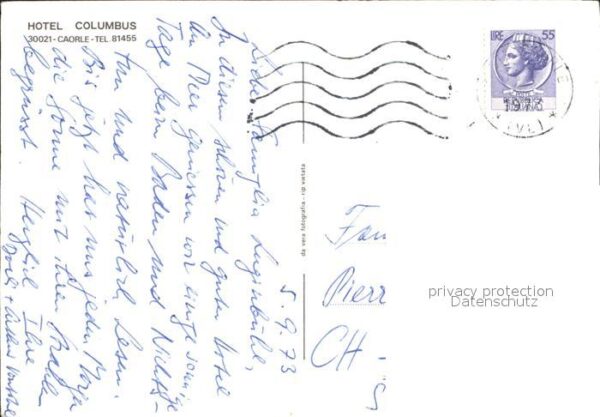 HOTEL COLUMBUS
30021 - CAORLE - TEL. 81455
5.9.73
Liebe Familia Luginbühl,
In diesem schönen und guten Hotel
am Meer geniessen wir einige sonnige
Tage beim Baden und Nichts-
tun und natürlich Lesen.
Bis jetzt hat uns jeden Morgen
die Sonne mit ihren Strahlen
begrüsst. Herzlich Ihre
da vera fotografia - rip vietata
LIRE 55
Fam
Pierr
CH-
privacy protection
Datenschutz